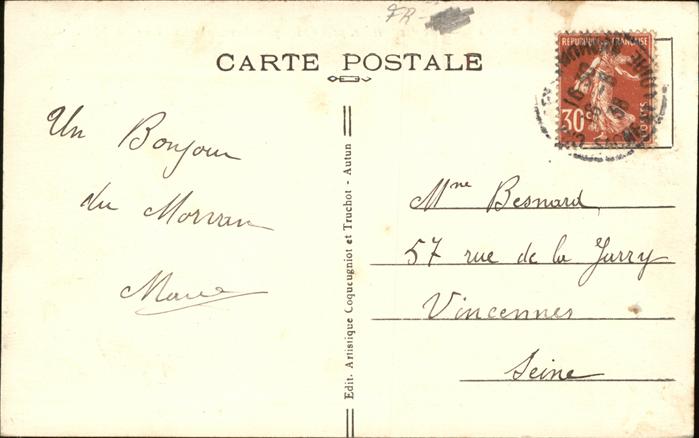 FR-
CARTE POSTALE
REPUBLIQUE FRANÇAISE
30c
POSTES
Un Bonjour
du Morvan
Edit. Artistique Coqueugniot et Truchot - Autun
Mme Besnard
57 rue de la Jarry
Vincennes
Seine